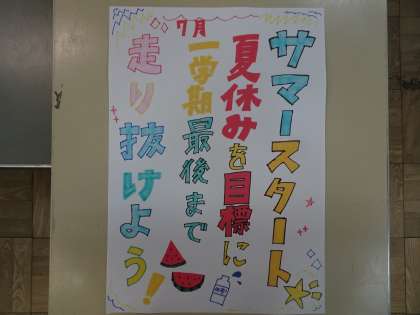 サマースタート
夏休みを目標に
7月
一学期最後まで
走り抜けよう!